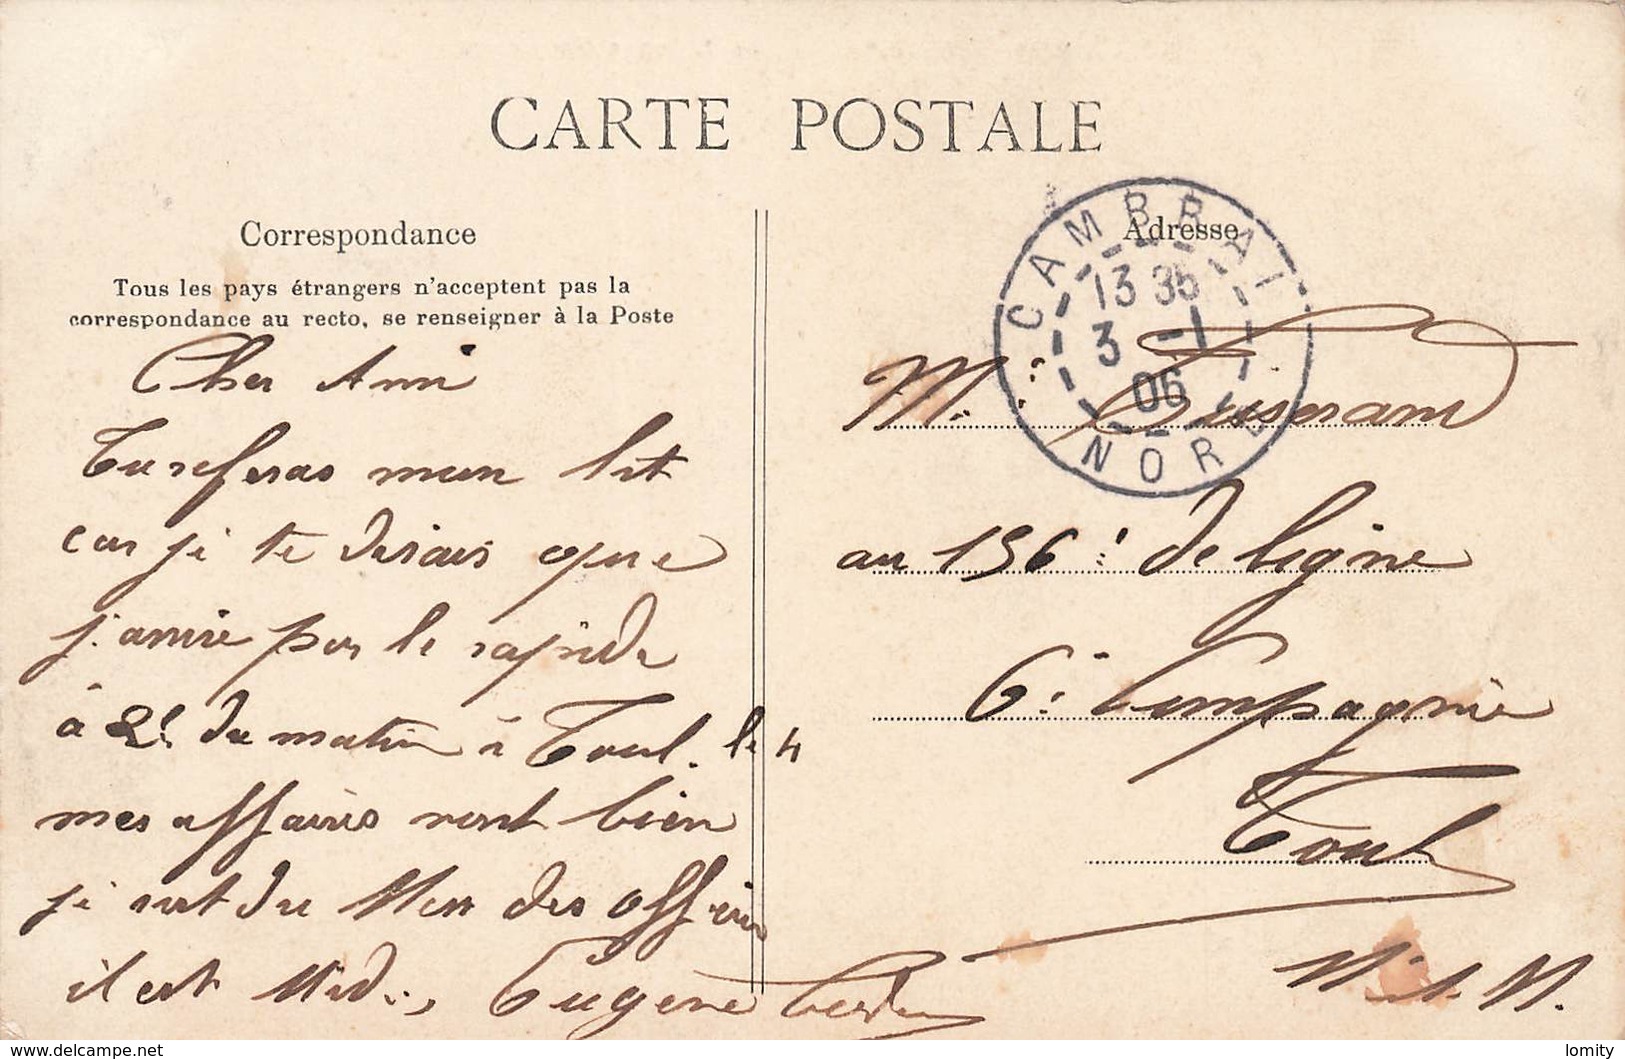 CARTE POSTALE
Correspondance
Tous les pays étrangers n'acceptent pas la
correspondance au recto, se renseigner à la Poste
Cher Ami
Tu referas mon lit
car je te dirais que
j'arrive par le rapide
à 2h du matin à Toul. le 4
mes affaires vont bien
je sort du Mess des officiers
il est Midi, Eugene
Adresse
CAMBRAI
13 35
3 -1
06
NORD
M.
au 156e de ligne
6e Compagnie
Toul
M. et M.
delcampe.net
lomity